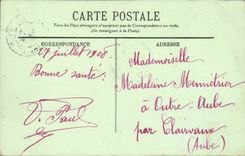 CARTE POSTALE
Tous les Pays étrangers n'acceptent pas la Correspondance au recto.
(Se renseigner à la Poste)
CORRESPONDANCE
27 juillet 1908.
Bonne santé.
V. Paul
ADRESSE
Mademoiselle
Madeleine Mennétrier
à Outre-Aube
par Clairvaux
(Aube)